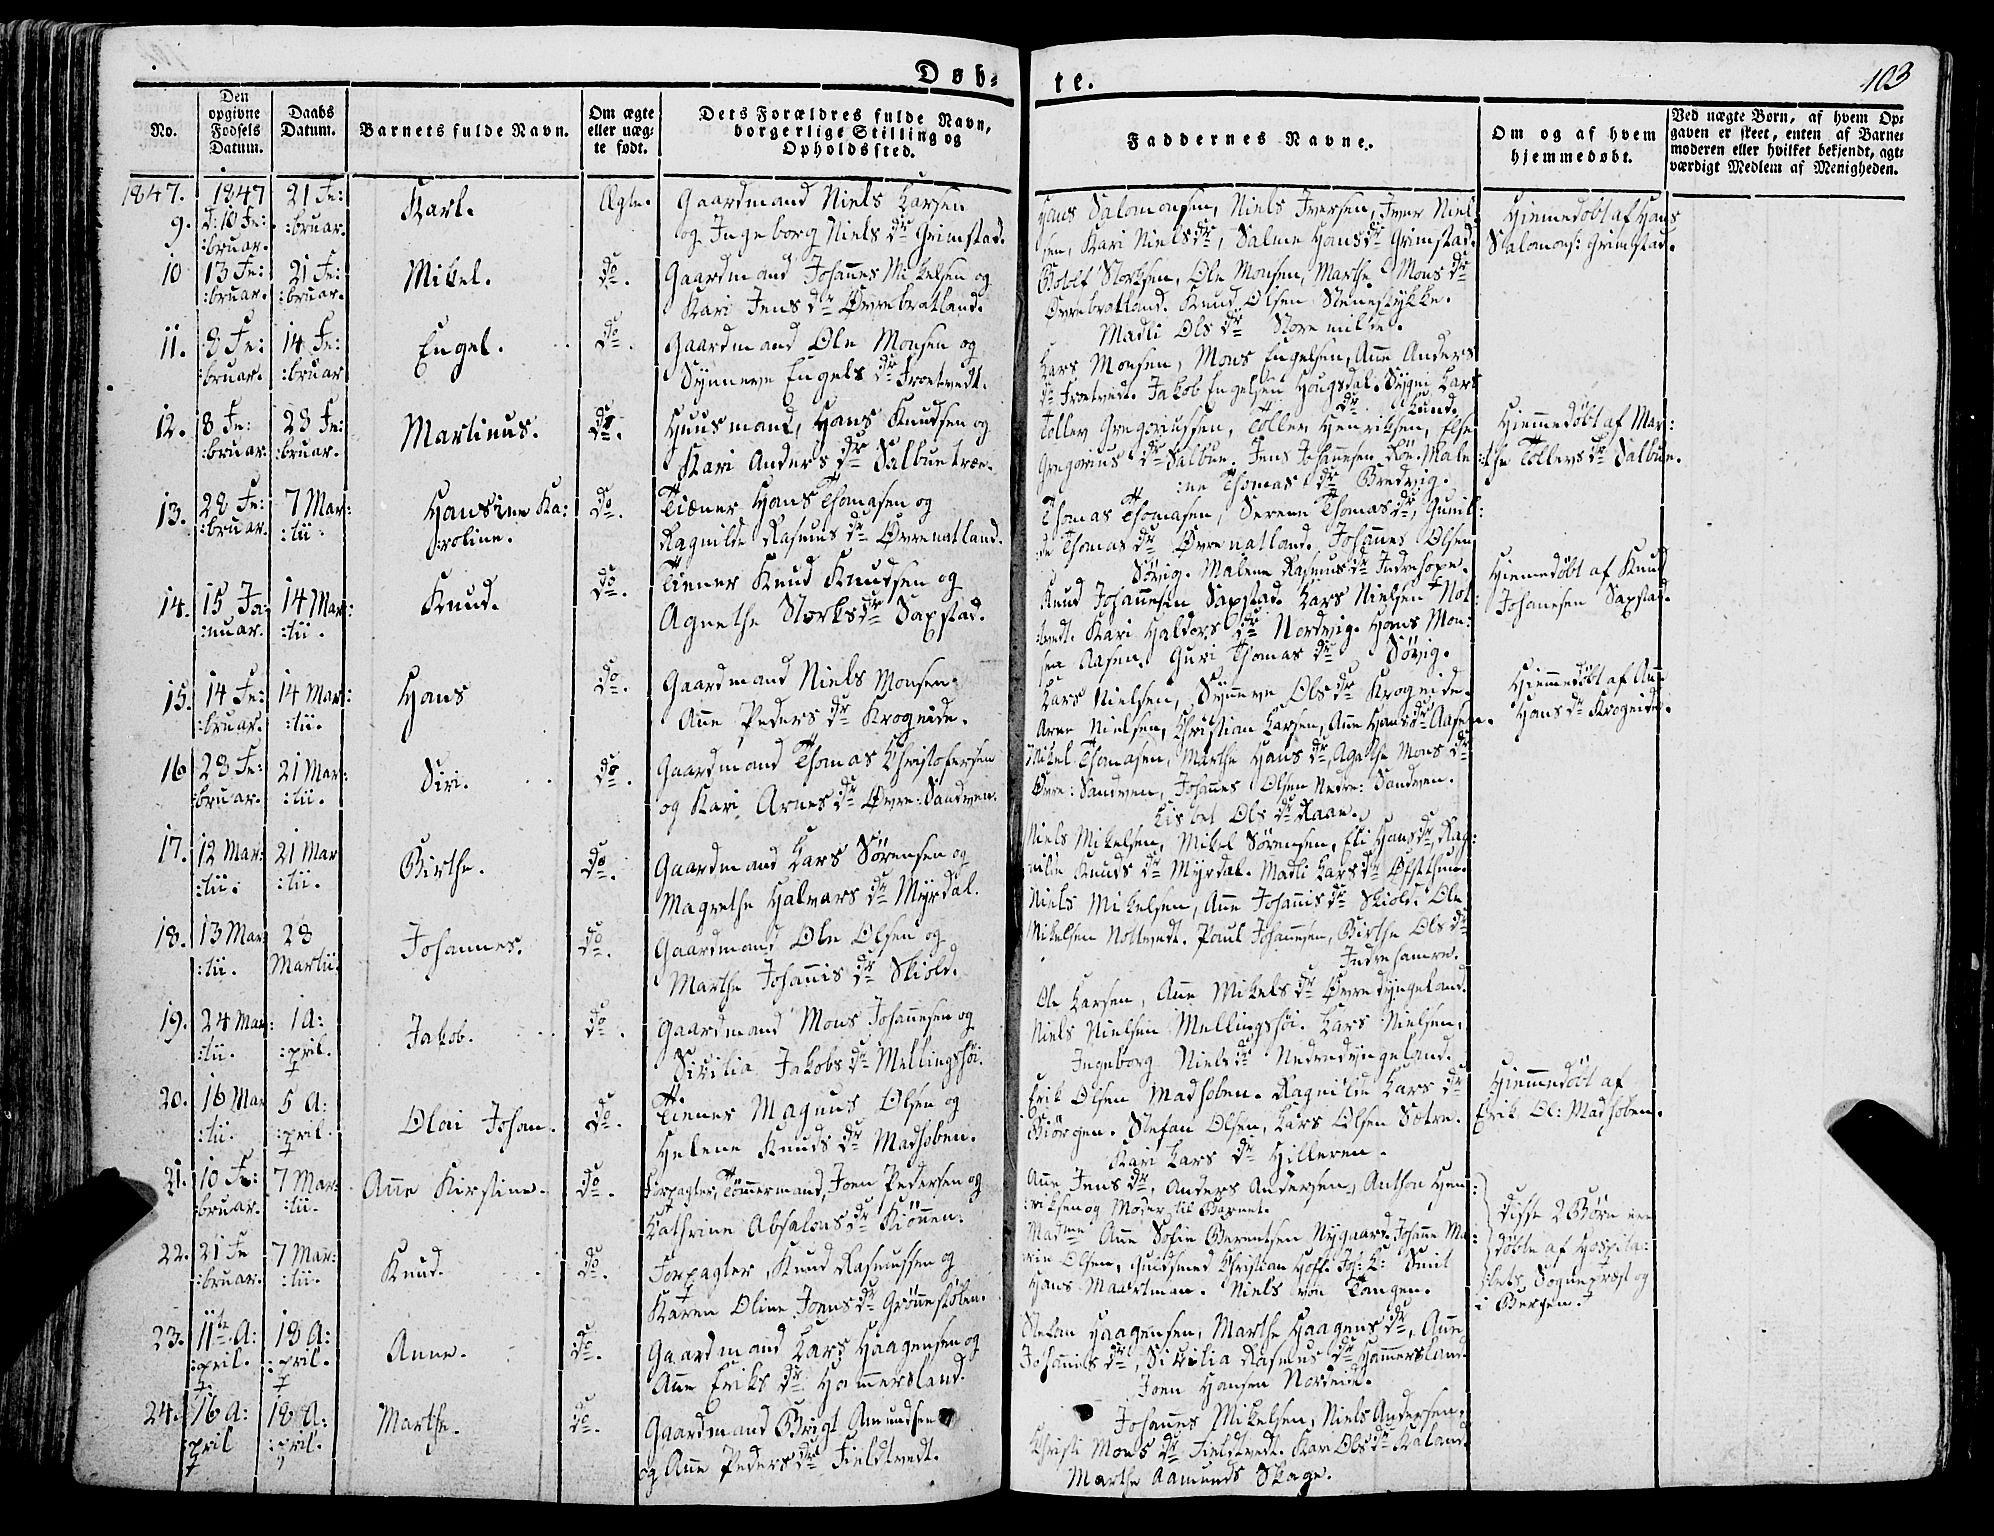 Døb-
te.
103
No.
Den opgivne Fødsels Datum.
Daabs Datum.
Barnets fulde Navn.
Om ægte eller uæg-te født.
Dets Forældres fulde Navn, borgerlige Stilling og Opholdssted.
Faddernes Navne.
Om og af hvem hjemmedøbt.
Ved uægte Børn, af hvem Op-gaven er skeet, enten af Barne-moderen eller hvilket bekjendt, agt-værdigt Medlem af Menigheden.
1847. 1847
9. d: 10 Fe: :bruar.
21 Fe: :bruar.
Karl.
Ægte.
Gaardmand Niels Larsen
og Ingeborg Niels dr Grimstad.
Hans Salomonsen, Niels Iversen, Iver Niel-
sen, Kari Nielsdr, Salme Hans dr Grimstad.
Hiemedøbt af Hans
Salomons: Grimstad.
10
13 Fe: :bruar.
21 Fe: :bruar.
Mikel.
do.
Gaardmand Johannes Mikelsen og
Kari Jens dr Øvrebratland.
Storksen, Ole Monsen, Marthe Mons dr
Øvrebratland. Knud Olsen Stenestykke.
Madli Ols dr Storemilde.
11.
8 Fe: :bruar.
14 Fe: :bruar
Engel.
do.
Gaardmand Ole Monsen og
Synneve Engels dr Frotvedt.
Lars Monsen, Mons Engelsen, Anne Anders
dr Frotvedt. Jakob Engelsen Hougsdal. Sygni Lars
dr Lund.
12.
8 Fe: :bruar
28 Fe: :bruar.
Martinus.
do.
Huusmand, Hans Knudsen og
Kari Anders dr Salbuetræe.
Tollev Gregoriussen, Tollev Henriksen, Else
Gregorius dr Salbue. Jens Johannesen Røe. Male
:ne Thomas dr Bredvig.
Hiemmedøbt af Mar:
:the Tollevs dr Salbue.
13.
28 Fe: :bruar.
7 Mar: :tii.
Hansine Ka:
:roline.
do.
Tiener Hans Thomasen og
Ragnilde Rasmus dr Øvrenatland.
Thomas Thomasen, Serene Thomasdr, Gunil:
:de Thomas dr Øvrenatland. Johannes Olsen
Sørvig. Malene Rasmus dr Indrehope.
14.
15 Ja: :nuar.
14 Mar: :tii.
Knud.
do.
Tiener Knud Knudsen og
Agnethe Storks dr Sapstad.
Knud Johannesen Sapstad. Lars Nielsen Not:
:tvedt. Kari Haldors dr Nordvig. Hans Mon:
sen Aasen. Guri Thomas dr Sørvig.
Hiemedøbt af Knud
Johannesen Sapstad.
15.
14 Fe: :bruar.
14 Mar: :tii.
Hans
do.
Gaardmand Niels Monsen.
Anne Peders dr Krogeide.
Lars Nielsen, Synneve Ols dr Krogeide.
Arne Nielsen, Christian Larsen, Anne Hansdr Aasen.
Hiemmedøbt af Anne
Hans dr Krogeide.
16
28 Fe: :bruar.
21 Mar: :tii.
Siri.
do.
Gaardmand Thomas Christofersen
og Kari Arnes dr Øvre: Sandven.
Mikel Thomasen, Marthe Hans dr, Agathe Mons dr
Øvre: Sandven, Johannes Olsen Nedre: Sandven.
Lisbet Ols dr Raae.
17.
12 Mar: :tii.
21 Mar :tii.
Birthe.
do.
Gaardmand Lars Sørensen og
Magrethe Halvars dr Myrdal.
Niels Mikelsen, Mikel Sørensen, Eli Hansdr, Rag:
nilde Knuds dr Myrdal. Madli Lars dr Øfsthuu.
18.
13 Mar: :tii.
28 Martii.
Johannes.
do.
Gaardmand Ole Olsen og
Marthe Johannis dr Skiold.
Niels Mikelsen, Anne Johannis dr Skiold. Ole
Mikelsen Nottvedt. Paul Johannesen, Birthe Ols dr
Indrehamre.
19.
24 Mar: :tii.
1 A: :pril.
Jakob.
do.
Gaardmand Mons Johannesen og
Sicilia Jakobs dr Mellingshøi.
Ole Larsen, Anne Mikels dr Øvredyngeland.
Niels Nielsen Mellingshøi. Lars Nielsen,
Ingeborg Niels dr Nedredyngeland.
20.
16 Mar :tii.
5 A: :pril.
Olai Johan.
do.
Tiener Magnus Olsen og
Helene Knuds dr Madhoben.
Erik Olsen Madhoben. Ragnilde Lars dr
Biørgen. Stefan Olsen, Lars Olsen Sætre.
Kari Lars dr Hilleren.
Hiemmedøbt af
Erik Ol: Madhoben.
21.
10 Fe: :bruar.
7 Mar: :tii.
Anne Kirstine.
do.
Forpagter, Tømmermand, Joen Pedersen og
Cathrine Absalons dr Kiønnen.
Anne Jens dr, Anders Andersen, Anthon Hen:
:riksen og Moder til Barnet.
Disse 2 Børn ere
døbte af Hospita:
:lets Sognepræst og
i Bergen.
22.
21 Fe :bruar.
7 Mar: :tii.
Knud.
do.
Forpagter, Knud Rasmussen og
Karen Oline Joens dr Grønneskøben.
Madme Anne Sofie Berentsen Nygaard. Johanne Ma:
rie Olsen, Guldsmed Christian Hoff. Joh: K: Smit
Hans Maartman. Niels von Tangen.
23.
11te A: :pril.
18 A: :pril.
Anne.
do.
Gaardmand Lars Haagensen og
Anne Eriks dr Hammersland.
Stefan Haagensen, Marthe Haagens dr, Anne
Johannis dr, Sicilia Rasmus dr Hammersland.
Joen Hansen Nordeide.
24.
16 A: :pril
18 A: :pril.
Marthe.
do.
Gaardmand Brigt Amundsen
og Anne Peders dr Fieldtvedt.
Johannes Mikelsen, Niels Andersen,
Christi Mons dr Fieldtvedt. Kari Ols dr Kaland.
Marthe Aamunds Skage.